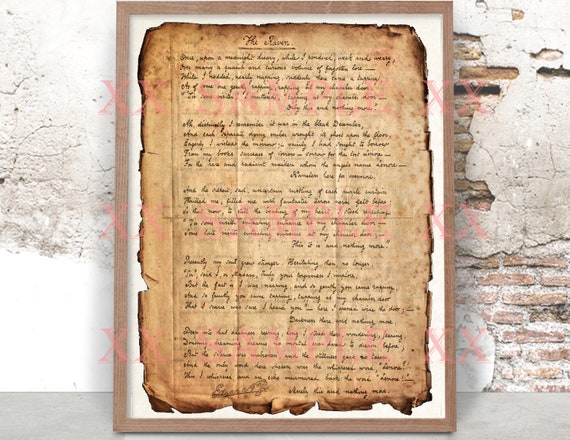 The Raven.
Once, upon a midnight dreary, while I pondered, weak and weary,
Over many a quaint and curious volume of forgotten lore —
While I nodded, nearly napping, suddenly there came a tapping,
As of some one gently rapping, rapping at my chamber door —
XX SAMPLE XX
Only this and nothing more.
Ah, distinctly I remember it was in the bleak December,
And each separate dying ember wrought its ghost upon the floor,
Eagerly I wished the morrow — vainly I had sought to borrow
From my books surcease of sorrow — sorrow for the lost Lenore —
For the rare and radiant maiden whom the angels name Lenore —
Nameless here for evermore.
And the silken, sad, uncertain rustling of each purple curtain
Thrilled me, filled me with fantastic terrors never felt before;
So that now, to still the beating of my heart, I stood repeating
XX SAMPLE XX
This it is and nothing more."
Presently my soul grew stronger. Hesitating then no longer,
"Sir," said I, "or Madam, truly your forgiveness I implore,
But the fact is I was napping, and so gently you came rapping,
And so faintly you came tapping, tapping at my chamber door
That I scarce was sure I heard you" — here I opened wide the door; —
Darkness there and nothing more.
XX SAMPLE XX
Doubting, dreaming dreams no mortal ever dared to dream before;
But the silence was unbroken, and the stillness gave no token,
And the only word there spoken was the whispered word, "Lenore!"
This I whispered, and an echo murmured back the word "Lenore!" —
Merely this and nothing more.